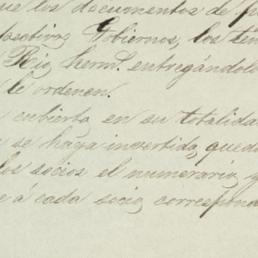 ue los documentos de p
posativos Gobiernos, los tén
Rio, herm. entregándole
le ordenen.
cubierta en su totalida
se haya invertido, queda
los socios el numerario, y
e á cada socio, correspond